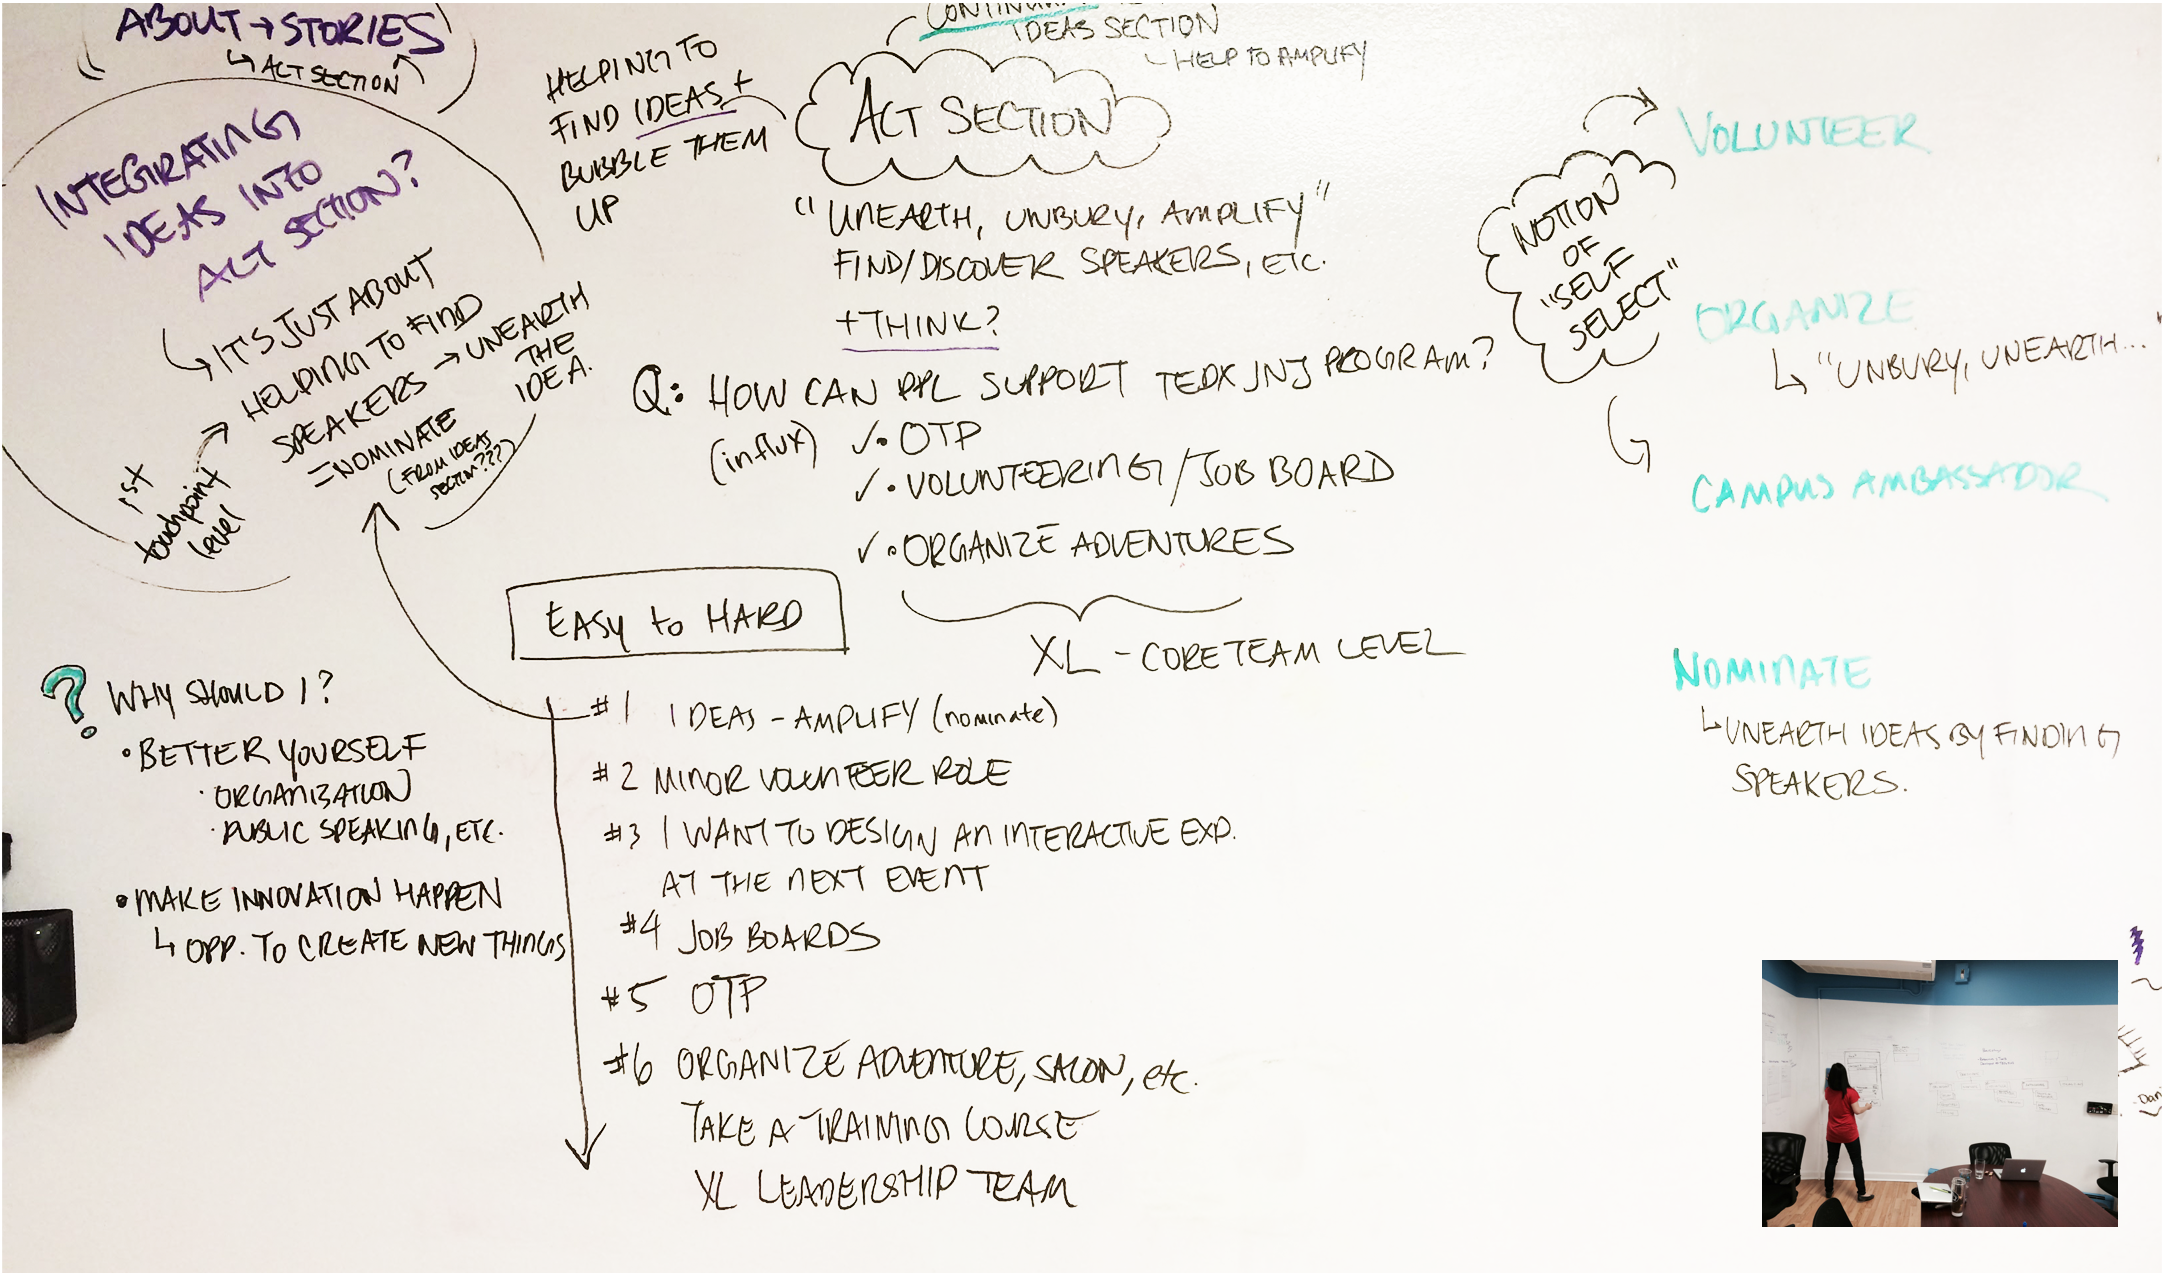 ABOUT → STORIES
↳ ACT SECTION
INTEGRATING
IDEAS INTO
ACT SECTION?
↳ IT'S JUST ABOUT
HELPING TO FIND
SPEAKERS → UNEARTH
THE
IDEA.
= NOMINATE
(FROM IDEAS
SECTION???)
1st
touchpoint
level
HELPING TO
FIND IDEAS +
BUBBLE THEM
UP
IDEAS SECTION
HELP TO AMPLIFY
ACT SECTION
"UNEARTH, UNBURY, AMPLIFY"
FIND/DISCOVER SPEAKERS, ETC.
+ THINK?
Q: HOW CAN PPL SUPPORT TEDX JNJ PROGRAM?
(influx) ✓• OTP
✓• VOLUNTEERING/JOB BOARD
✓• ORGANIZE ADVENTURES
XL - CORE TEAM LEVEL
EASY to HARD
#1 IDEAS - AMPLIFY (nominate)
#2 MINOR VOLUNTEER ROLE
#3 I WANT TO DESIGN AN INTERACTIVE EXP.
AT THE NEXT EVENT
#4 JOB BOARDS
#5 OTP
#6 ORGANIZE ADVENTURE, SALON, etc.
TAKE A TRAINING COURSE
XL LEADERSHIP TEAM
? WHY SHOULD I?
• BETTER YOURSELF
· ORGANIZATION
· PUBLIC SPEAKING, ETC.
• MAKE INNOVATION HAPPEN
↳ OPP. TO CREATE NEW THINGS
NOTION
OF
"SELF
SELECT"
VOLUNTEER
ORGANIZE
↳ "UNBURY, UNEARTH..."
CAMPUS AMBASSADOR
NOMINATE
↳ UNEARTH IDEAS BY FINDING
SPEAKERS.